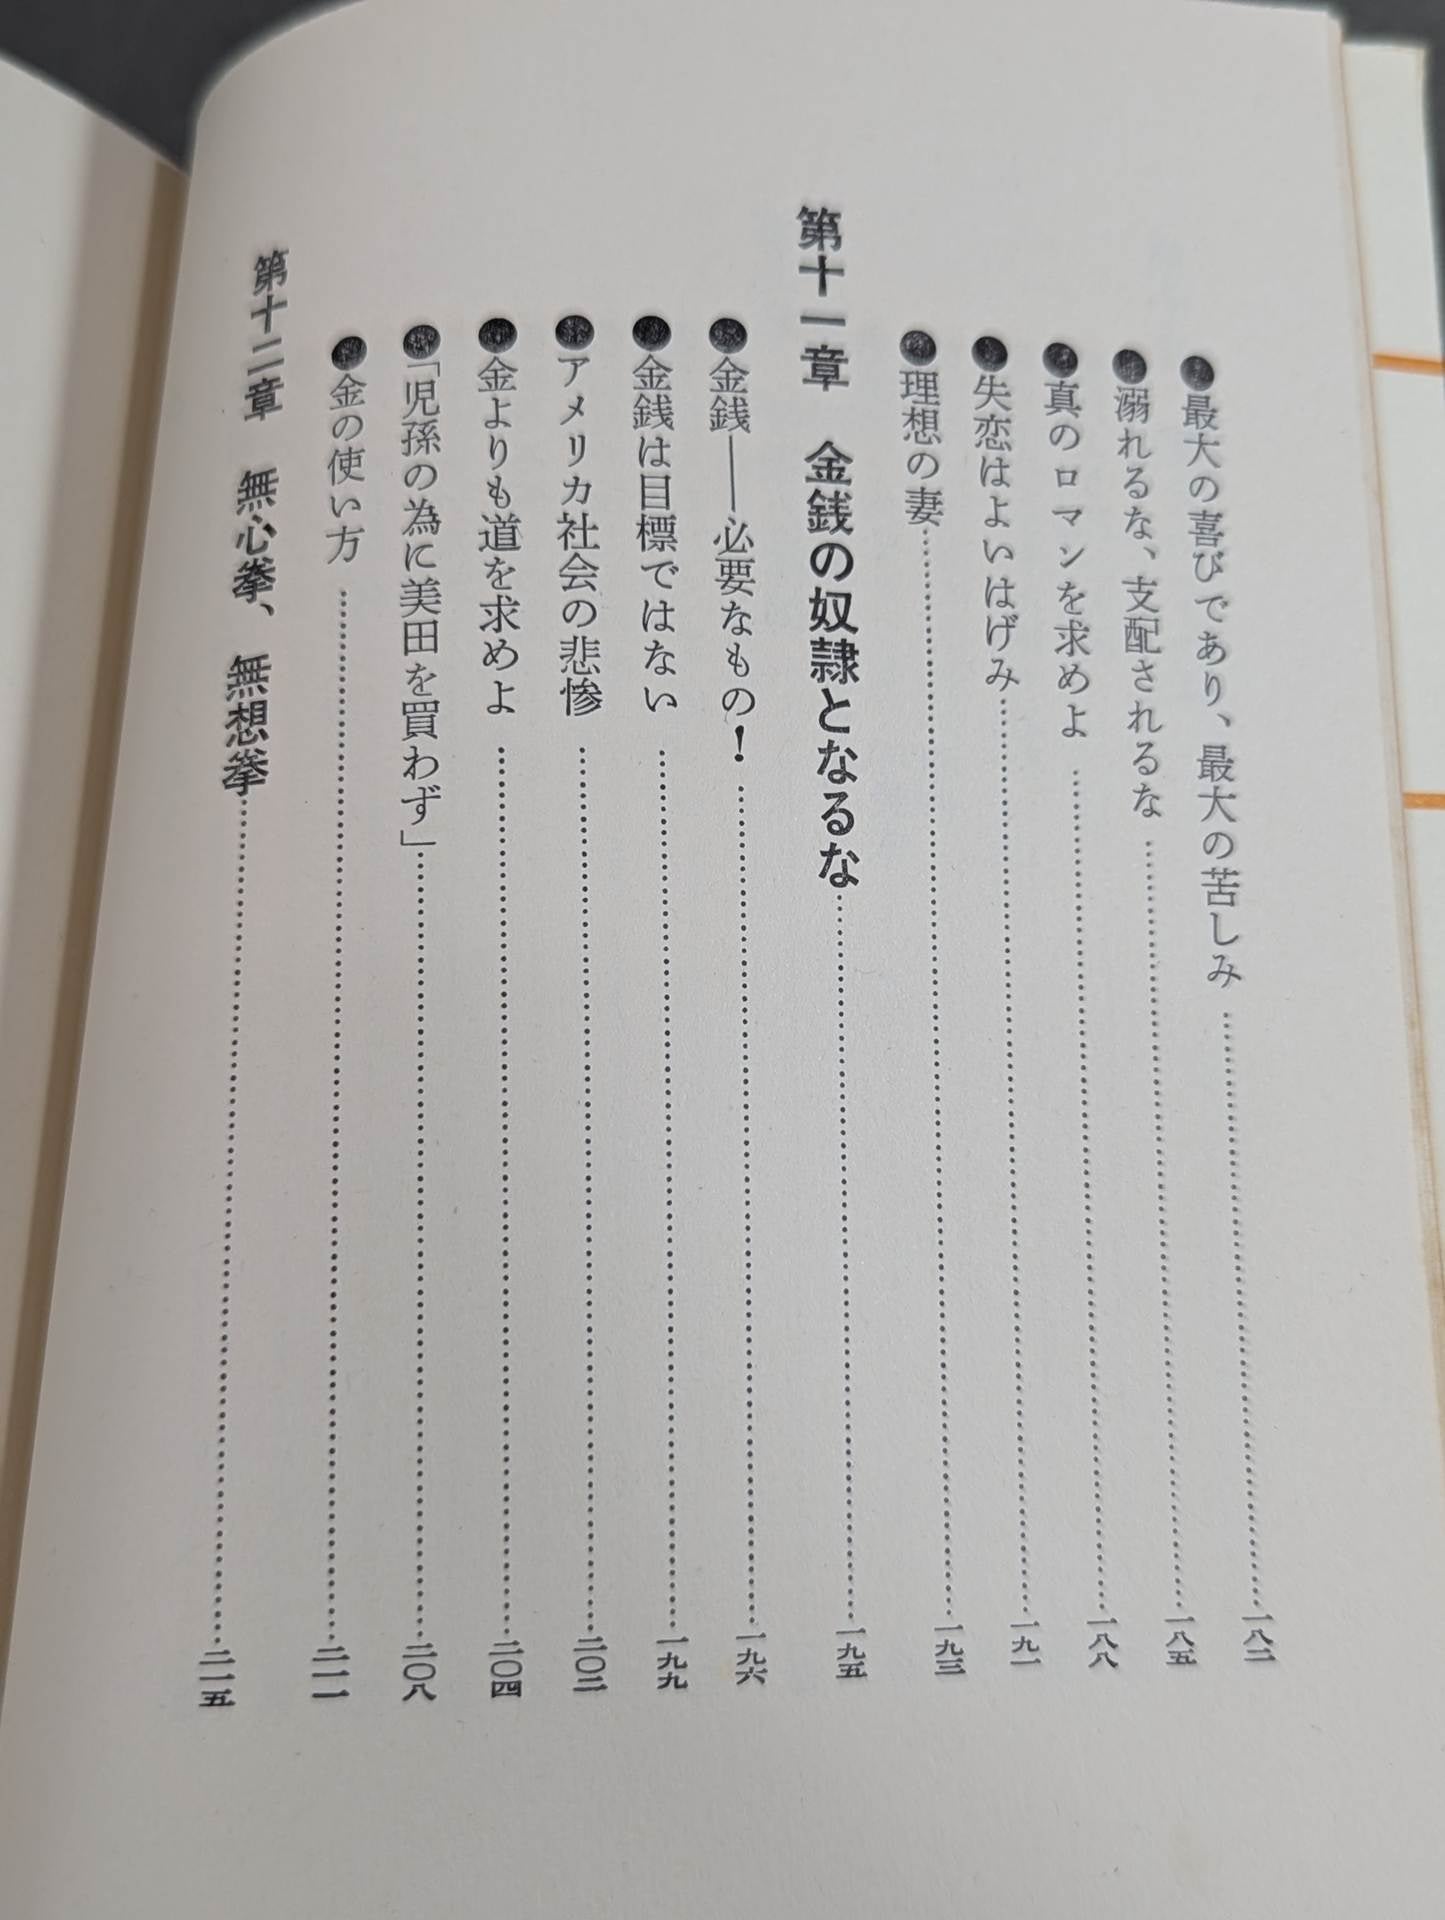 ●最大の喜びであり、最大の苦しみ……一八二
●溺れるな、支配されるな……一八五
●真のロマンを求めよ……一八八
●失恋はよいはげみ……一九一
●理想の妻……一九三
第十一章 金銭の奴隷となるな……一九五
●金銭――必要なもの!……一九六
●金銭は目標ではない……一九九
●アメリカ社会の悲惨……二〇二
●金よりも道を求めよ……二〇四
●「児孫の為に美田を買わず」……二〇八
●金の使い方……二一一
第十二章 無心拳、無想拳……二一五